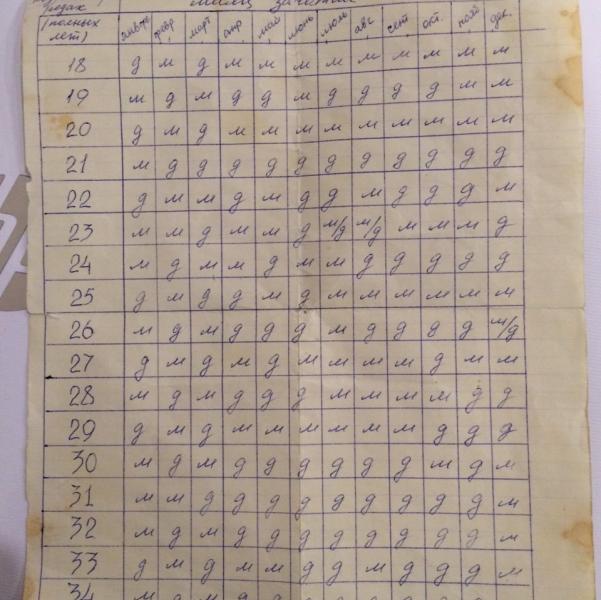 годах месяц зачатия
(полных лет) январь февр март апр май июнь июль авг сент окт. нояб дек.
18 д м д м м м м м м м м м
19 м д м д д м д д д д м м
20 д м д м м м м м м м м м
21 м д д д д д д д д д д д
22 д м м д м д д м д д д м
23 м м д м м д м/д м/д м м м д
24 м д м м д м м д д д д д
25 д м д д м д м м м м м м
26 м д м д д д м д д д д м/д
27 д м д м д м м м м д м м
28 м д м д д д м м м м д д
29 д м д м м м м м м д д д
30 м д м д д д д д д м д м
31 м м д д д д д д д д д м
32 м д м д д д д д д д д м
33 д м д м м д д м д д д м
34 м д м д